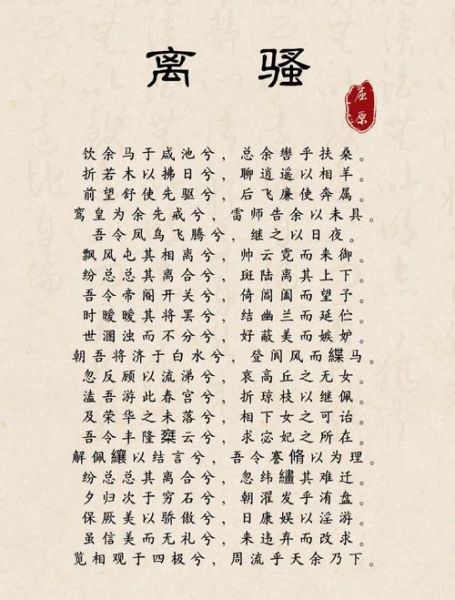 离骚
屈原
饮余马于咸池兮，总余辔乎扶桑。
折若木以拂日兮，聊逍遥以相羊。
前望舒使先驱兮，后飞廉使奔属。
鸾皇为余先戒兮，雷师告余以未具。
吾令凤鸟飞腾兮，继之以日夜。
飘风屯其相离兮，帅云霓而来御。
纷总总其离合兮，斑陆离其上下。
吾令帝阍开关兮，倚阊阖而望予。
时暧暧其将罢兮，结幽兰而延伫。
世溷浊而不分兮，好蔽美而嫉妒。
朝吾将济于白水兮，登阆风而緤马。
忽反顾以流涕兮，哀高丘之无女。
溘吾游此春宫兮，折琼枝以继佩。
及荣华之未落兮，相下女之可诒。
吾令丰隆椉云兮，求宓妃之所在。
解佩纕以结言兮，吾令蹇脩以为理。
纷总总其离合兮，忽纬繣其难迁。
夕归次于穷石兮，朝濯发乎洧盘。
保厥美以骄傲兮，日康娱以淫游。
虽信美而无礼兮，来违弃而改求。
览相观于四极兮，周流乎天余乃下。